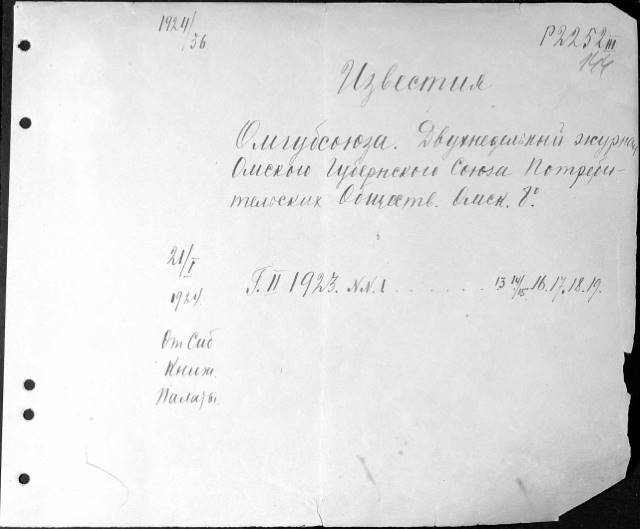 1924/36
P2252III
Известия
Омгубсоюза. Двухнедельный журнал
Омского Губернского Союза Потреби-
тельских Обществ. Омск. 8°.
21/I
1924
Г. II 1923. NN. 1 . . . . . . . . 13 14/15. 16. 17. 18. 19.
От Сиб
Книж.
Палаты